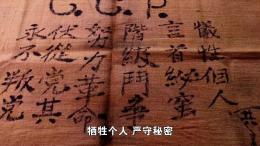 C.C.P.
犧牲個人
言首秘蜜
階級鬥爭
努力革命
伏從党其
永不叛党
牺牲个人 严守秘密